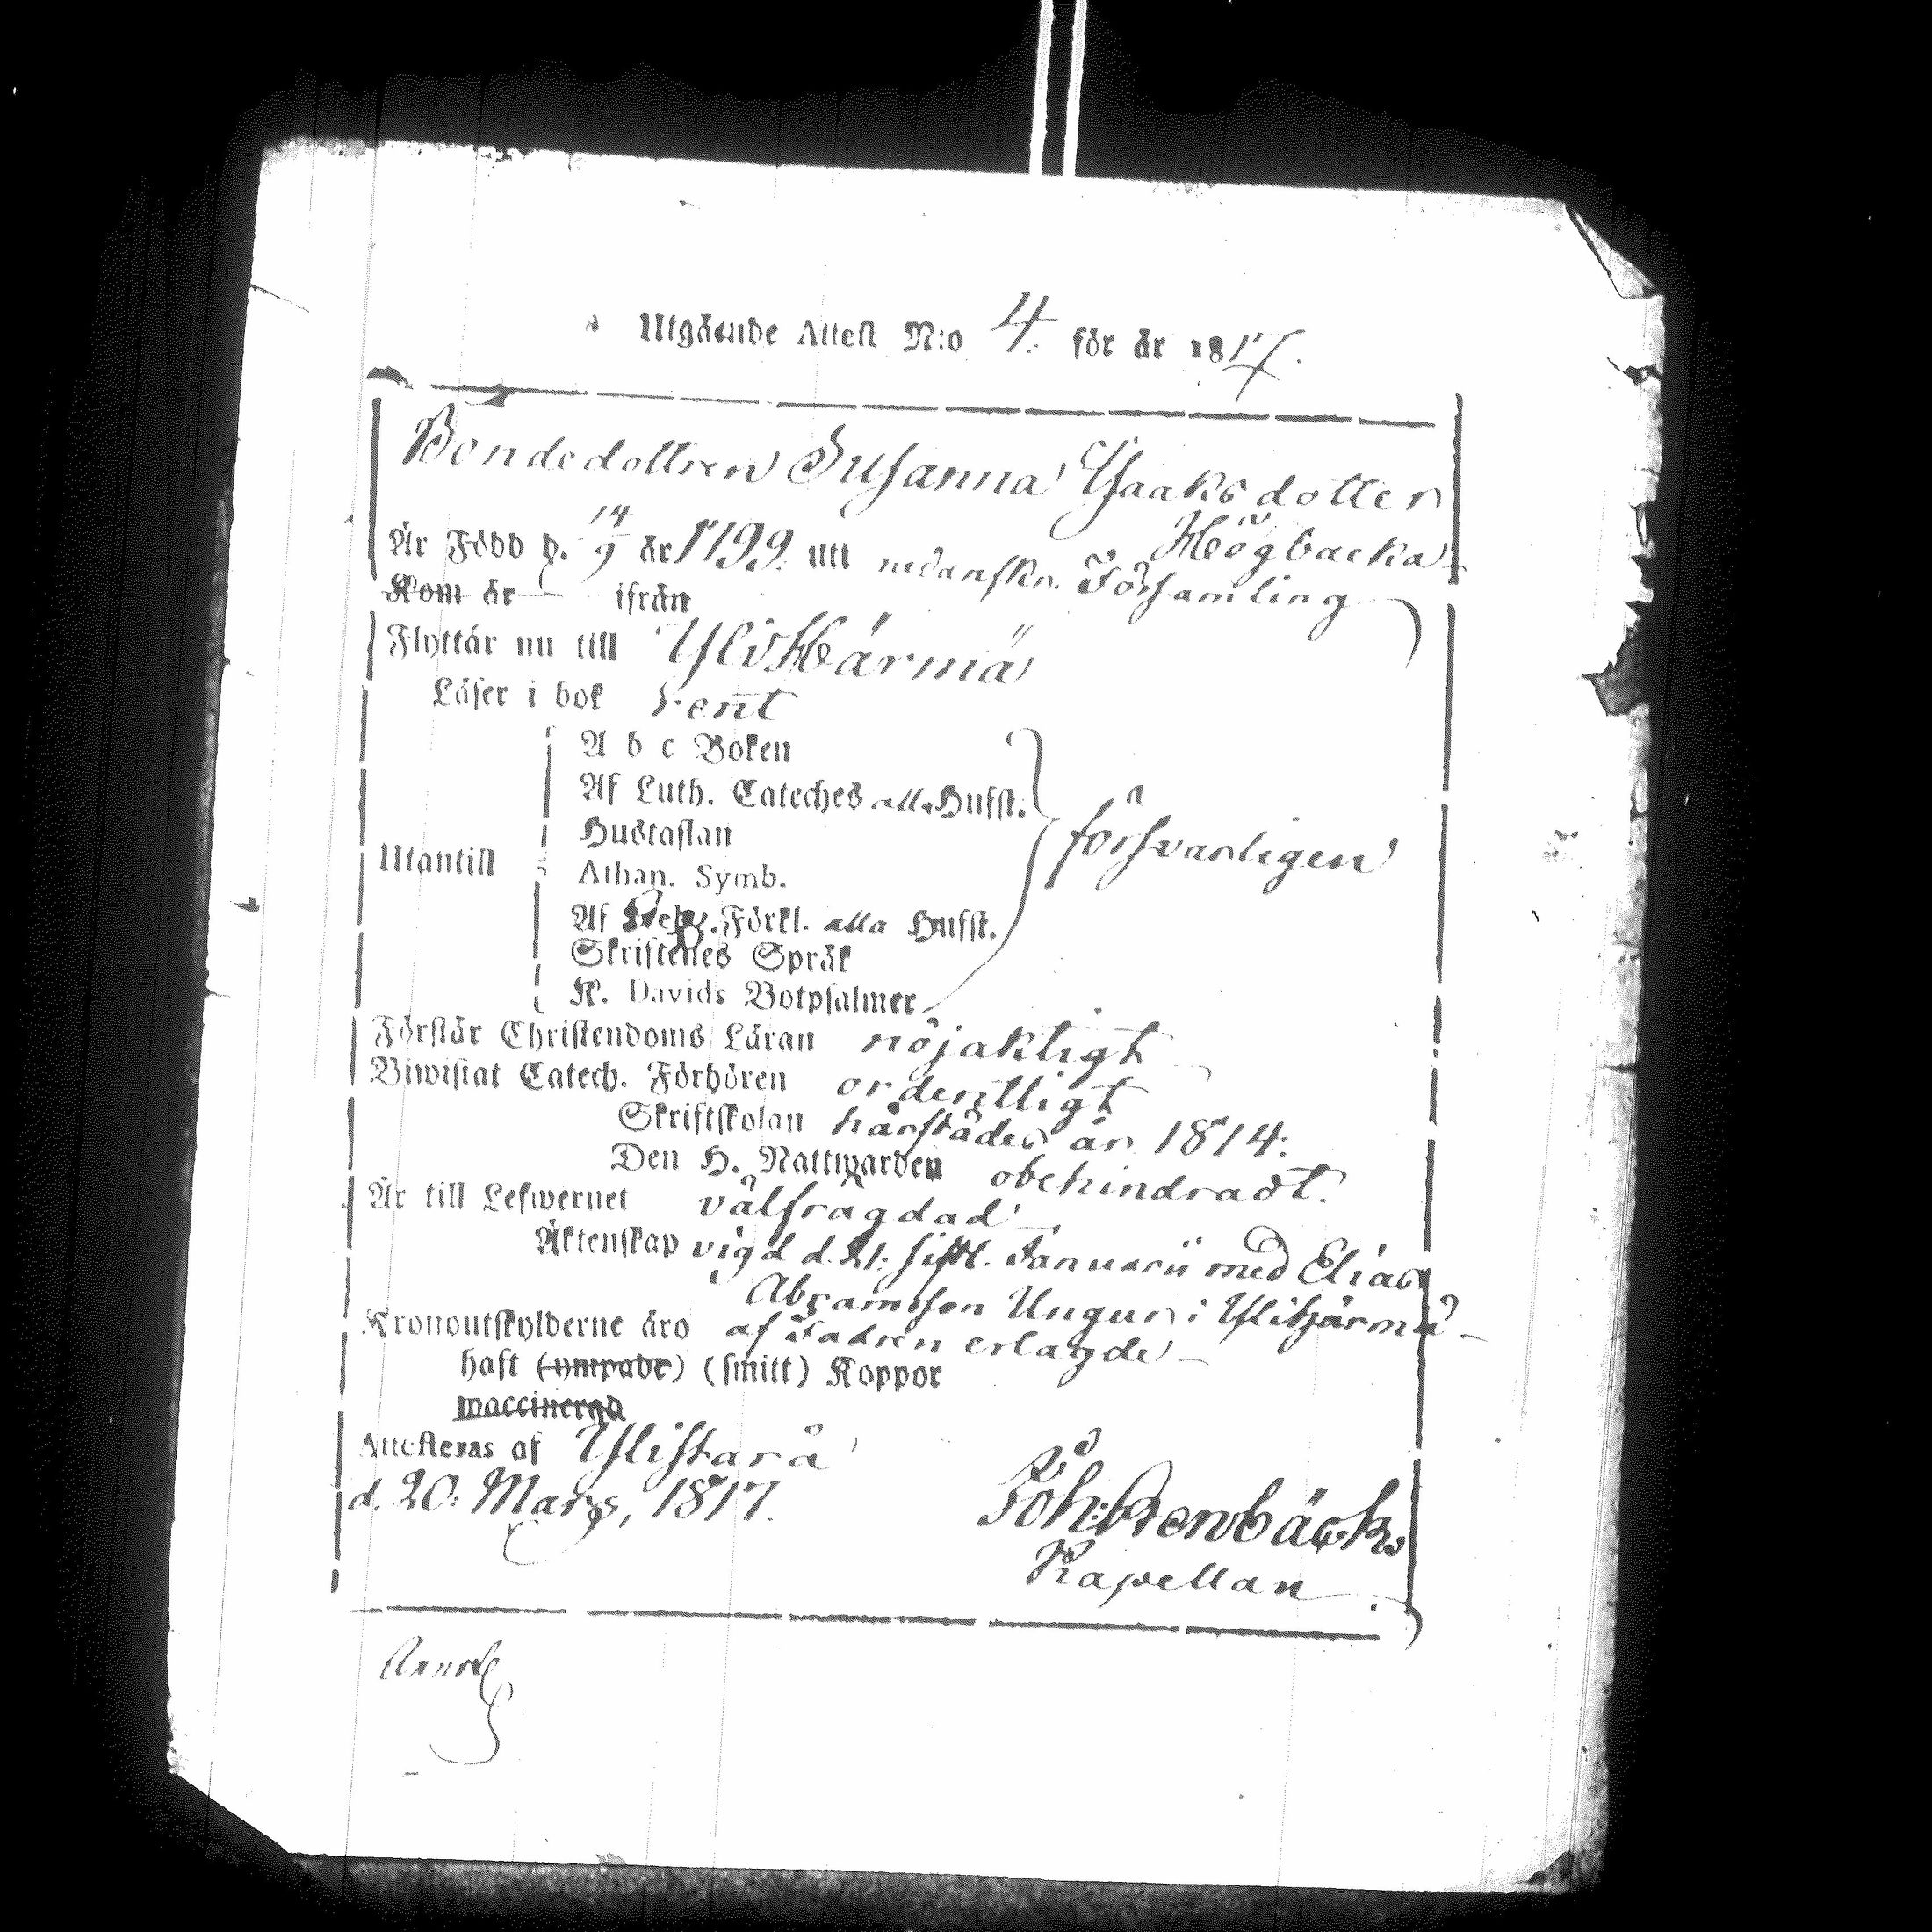 Utgående Attest N:o 4. för år 1817.
Bondedottren Susanna Ysaaksdotter
Högbacka
Är Född d. 14/9 år 1799. uti nedanskn. Församling
Kom år ifrån
Flyttar nu till YliHärmä
Läser i bok rent
A b c Boken
Af Luth. Cateches alla Hufst.
Hustaflan
Utantill försvarligen
Athan. Symb.
Af Förkl. alla Hufst.
Skriftenes Språk
K. Davids Botpsalmer
Förstår Christendoms Läran nöjaktigt
Biwistat Catech. Förhören ordentligt
Skriftskolan härstädes år 1814.
Den H. Nattwarden obehindradt.
Är till Lefwernet välfragdad
Äktenskap vigd d. 21. sistl. Januarii med Elias
Abramsson Unguri i Ylihärmä
Kronoutskylderne äro af Fadren erlagde
haft (ympade) (smitt) Koppor
waccinerad
Attesteras af Ylistarå
d. 20. Mars, 1817.
Joh: Stenbäck
Kapellan